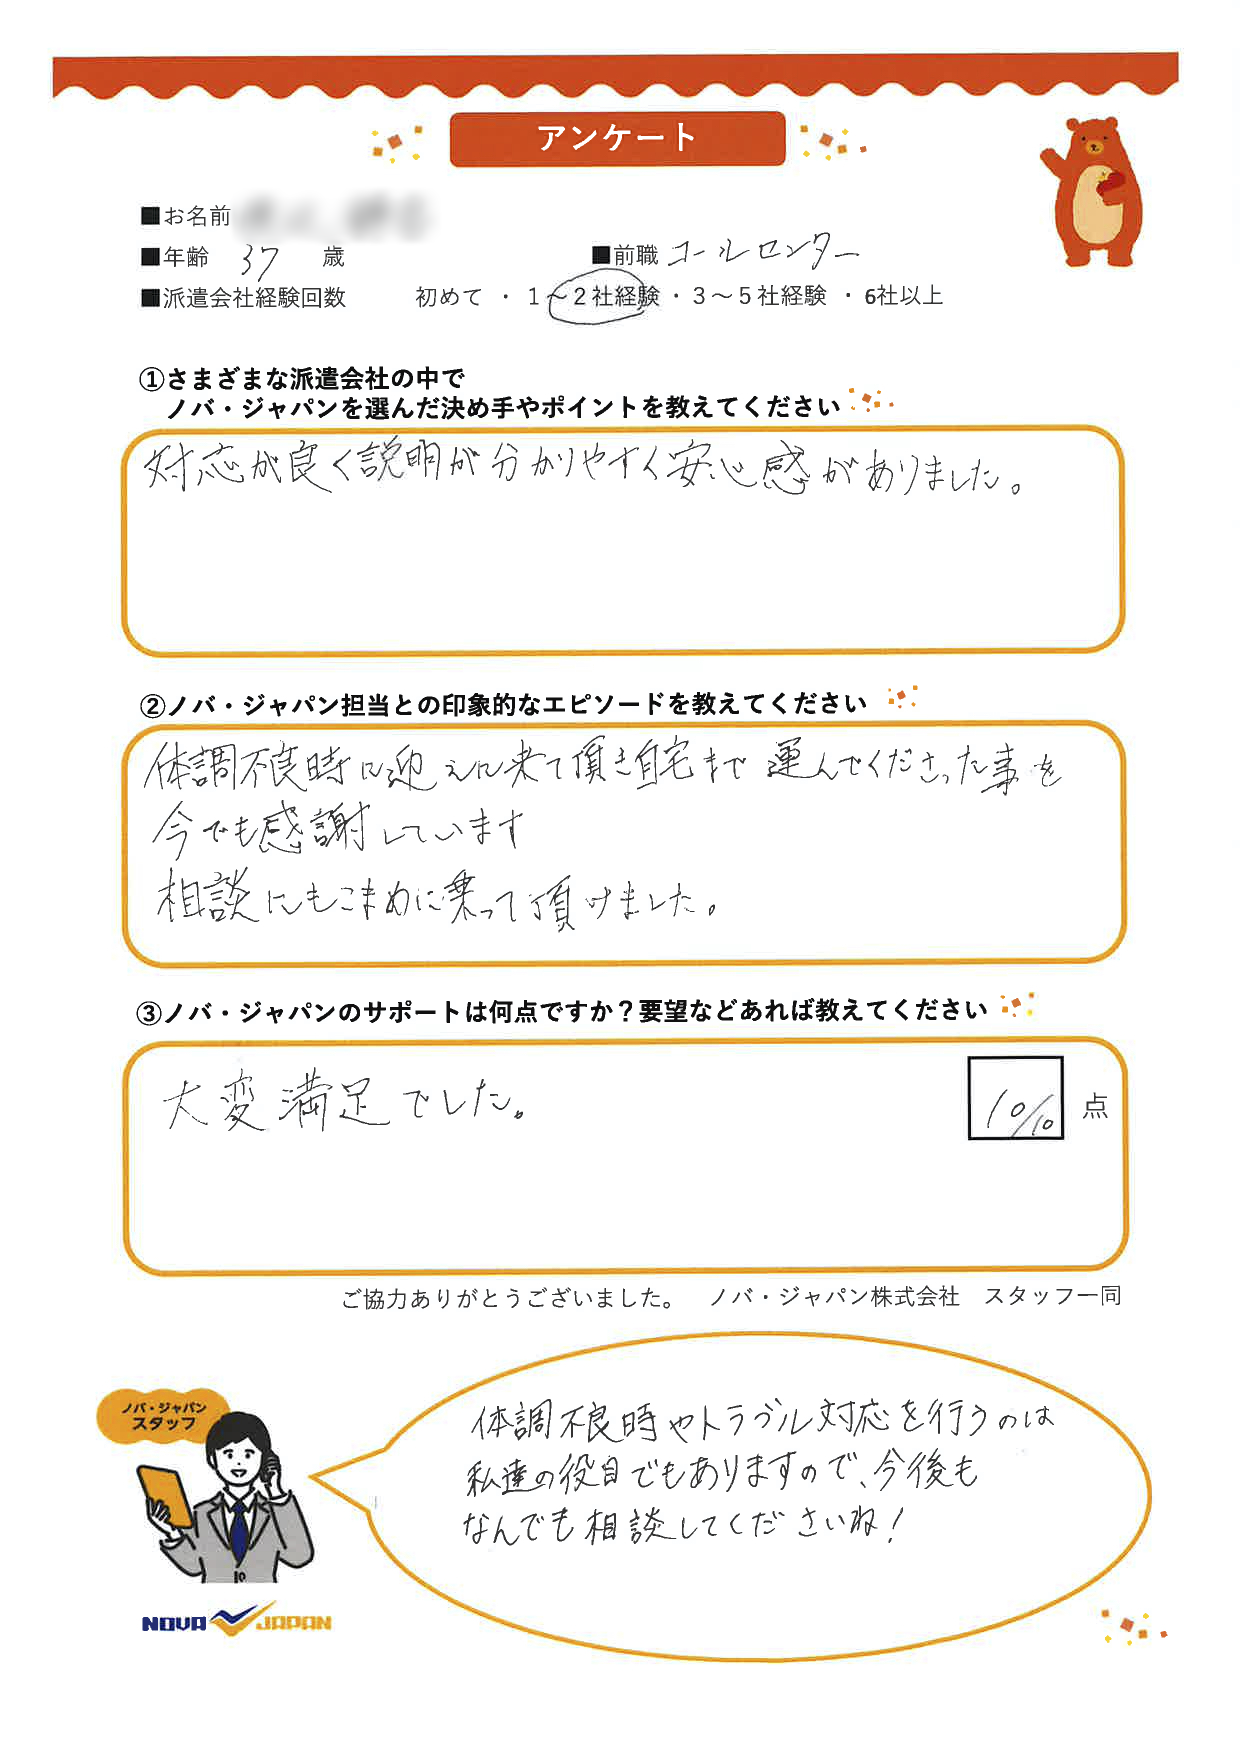 アンケート
■お名前
■年齢 37 歳 ■前職 コールセンター
■派遣会社経験回数 初めて ・ 1～2社経験 ・ 3～5社経験 ・ 6社以上
①さまざまな派遣会社の中で
ノバ・ジャパンを選んだ決め手やポイントを教えてください
対応が良く説明が分かりやすく安心感がありました。
②ノバ・ジャパン担当との印象的なエピソードを教えてください
体調不良時に迎えに来て頂き自宅まで運んでくださった事を
今でも感謝しています
相談にもこまめに乗って頂けました。
③ノバ・ジャパンのサポートは何点ですか？要望などあれば教えてください
大変満足でした。
10/10 点
ご協力ありがとうございました。 ノバ・ジャパン株式会社 スタッフ一同
ノバ・ジャパン
スタッフ
体調不良時やトラブル対応を行うのは
私達の役目でもありますので、今後も
なんでも相談してくださいね！
NOVA JAPAN